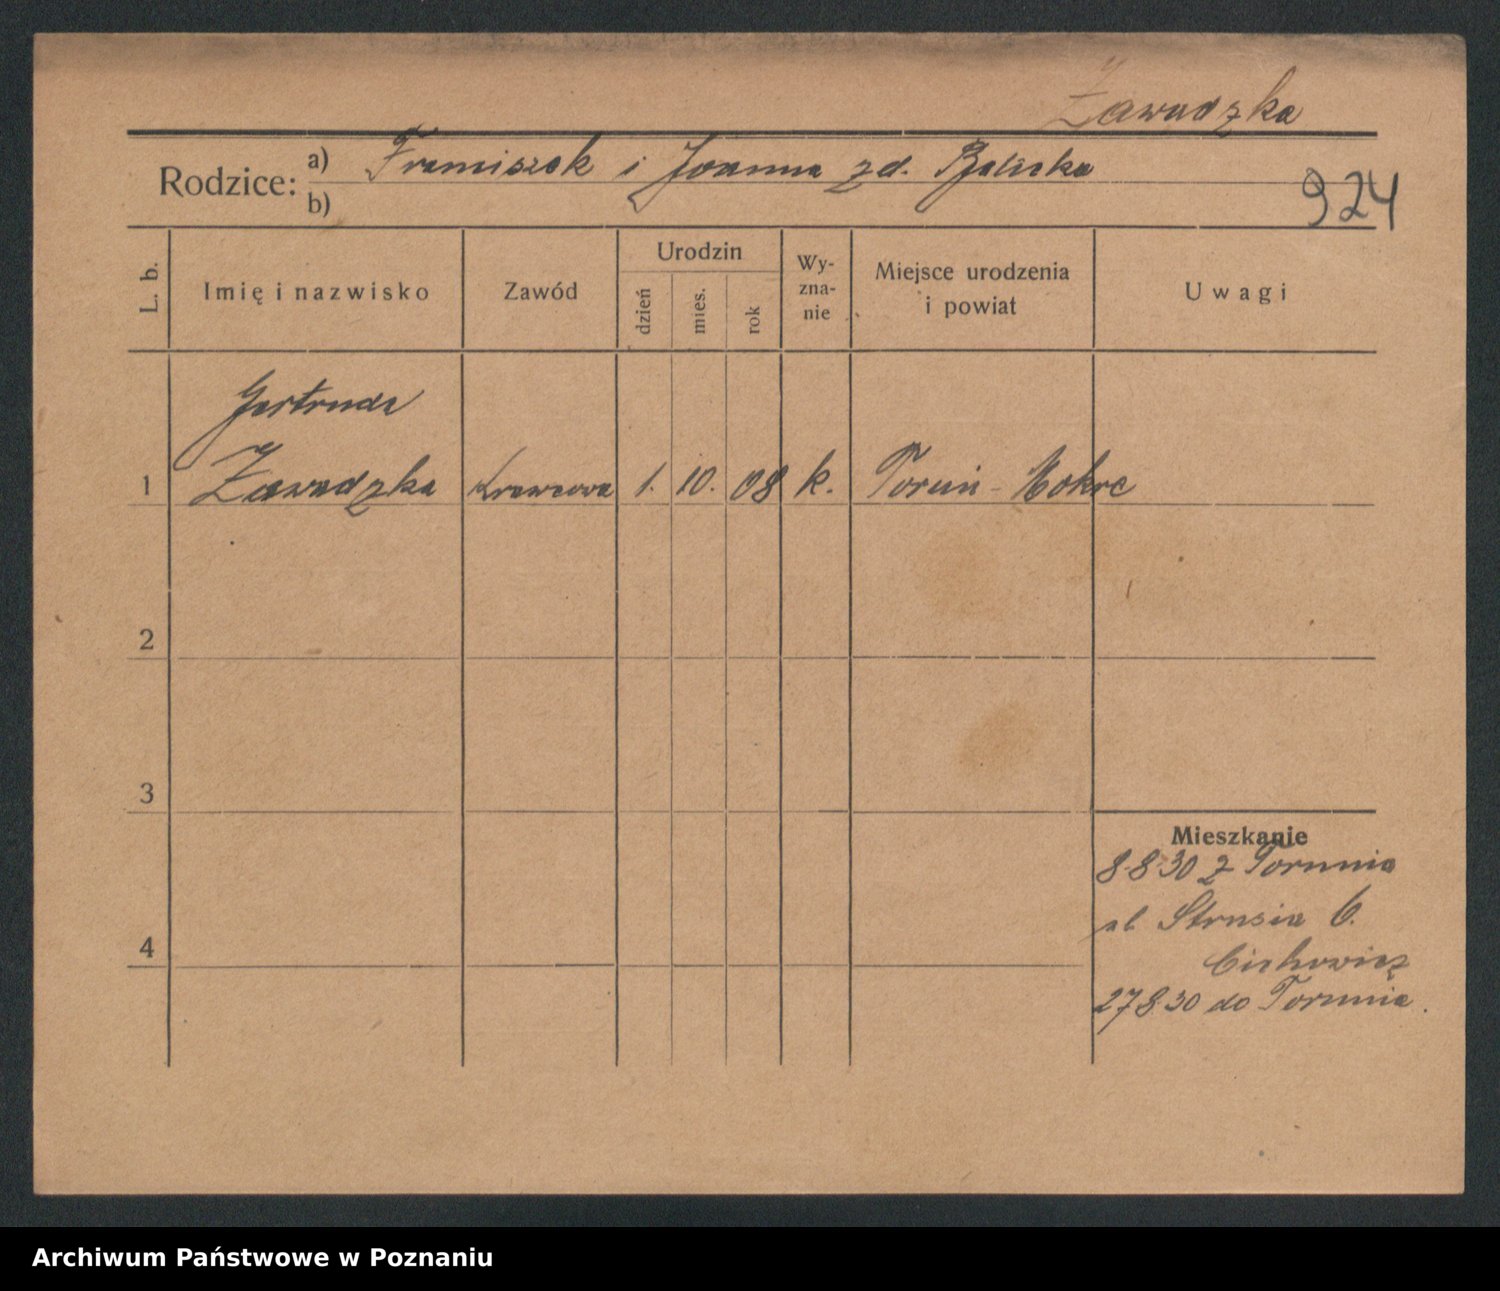 Zawadzka
Rodzice: a) Franciszek i Joanna zd. Balicka
b)
924
L. b.
Imię i nazwisko
Zawód
Urodzin
dzień
mies.
rok
Wy-
zna-
nie
Miejsce urodzenia
i powiat
Uwagi
Gertruda
1 Zawadzka Krawcowa 1. 10. 08 k. Toruń - Mokre
2
3
4
Mieszkanie
8.8.30 z Torunia
ul Strusia 6.
Cichowicz
27.8.30 do Torunia.
Archiwum Państwowe w Poznaniu